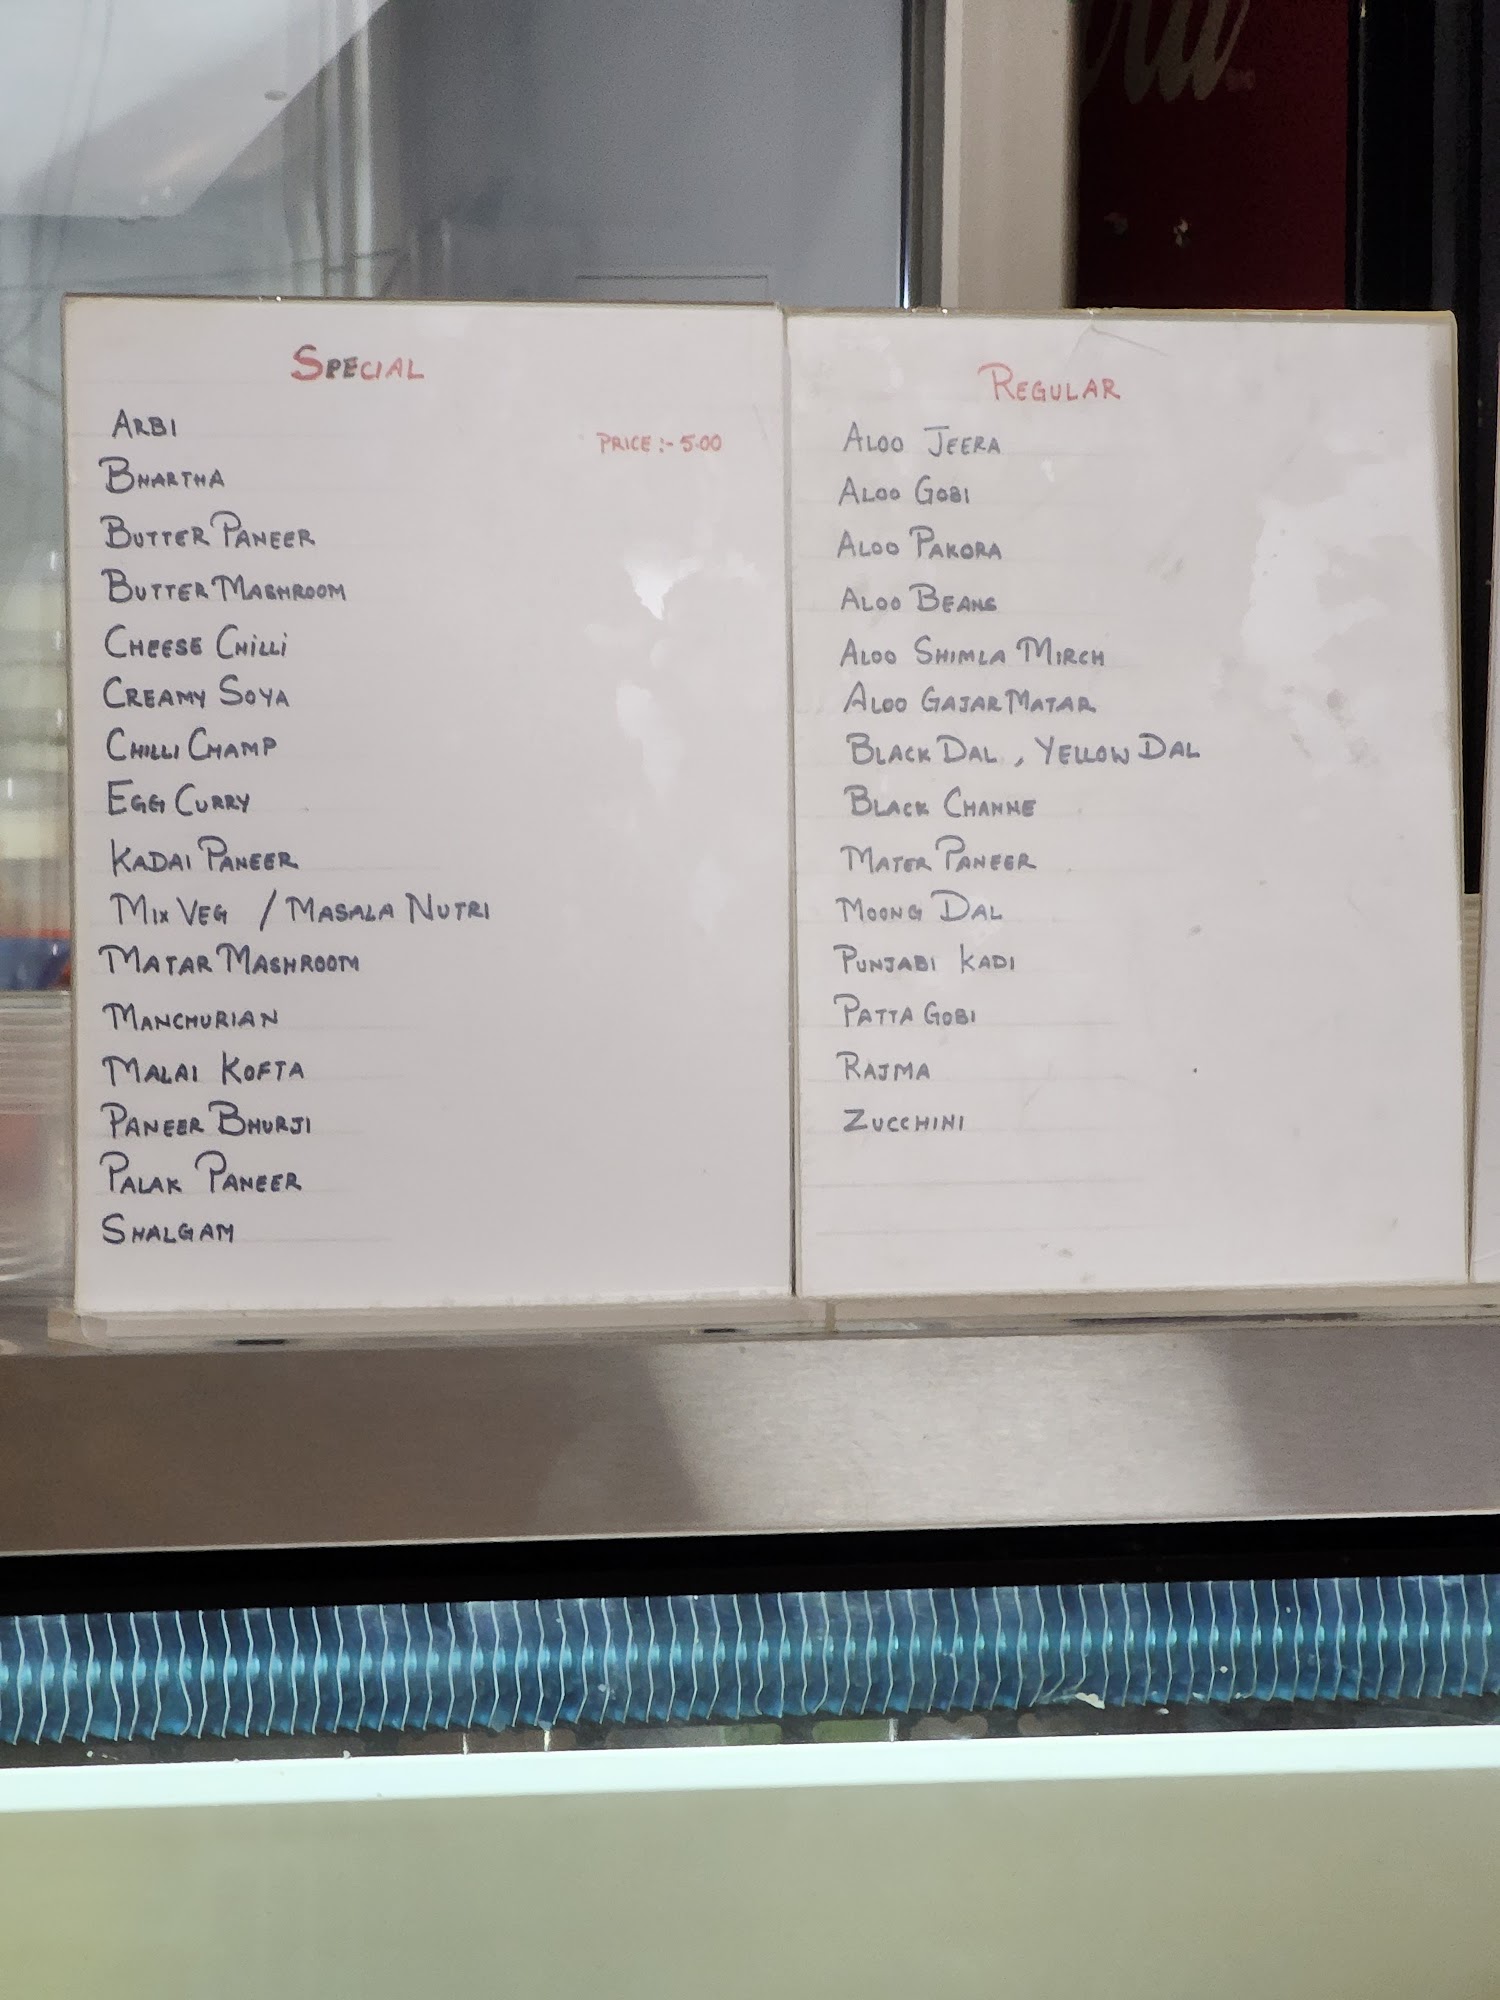 SPECIAL
ARBI
PRICE :- 5.00
BHARTHA
BUTTER PANEER
BUTTER MASHROOM
CHEESE CHILLI
CREAMY SOYA
CHILLI CHAMP
EGG CURRY
KADAI PANEER
MIX VEG / MASALA NUTRI
MATAR MASHROOM
MANCHURIAN
MALAI KOFTA
PANEER BHURJI
PALAK PANEER
SHALGAM
REGULAR
ALOO JEERA
ALOO GOBI
ALOO PAKORA
ALOO BEANS
ALOO SHIMLA MIRCH
ALOO GAJAR MATAR
BLACK DAL , YELLOW DAL
BLACK CHANNE
MATER PANEER
MOONG DAL
PUNJABI KADI
PATTA GOBI
RAJMA
ZUCCHINI